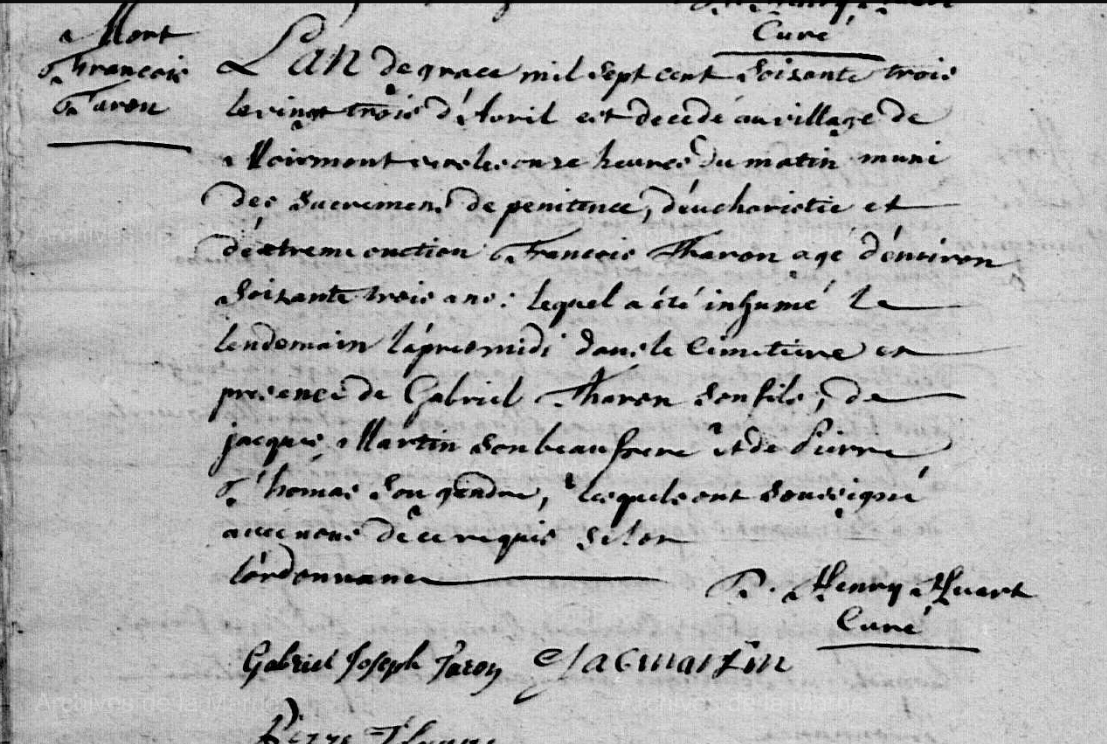 Curé
Mort
François
Taron
L'an de grace mil sept cent soixante trois
le vingt trois d'Avril est decedé au village de
Moirmont vers les onze heures du matin muni
des sacremens de penitence, d'eucharistie et
d'extreme onction François Tharon agé d'environ
soixante trois ans : lequel a été inhumé le
lendemain l'apresmidi dans le cimetiere en
presence de Gabriel Tharon son fils, de
jacques Martin son beaufrere et de Pierre
Thomas son gendre, lesquels ont soussigné
avec nous de ce requis selon
l'ordonnance
P. Henry Huart
Curé
Gabriel Joseph Taron Jacmartin
Pierre
Archives de la Marne
Archives de la Marne